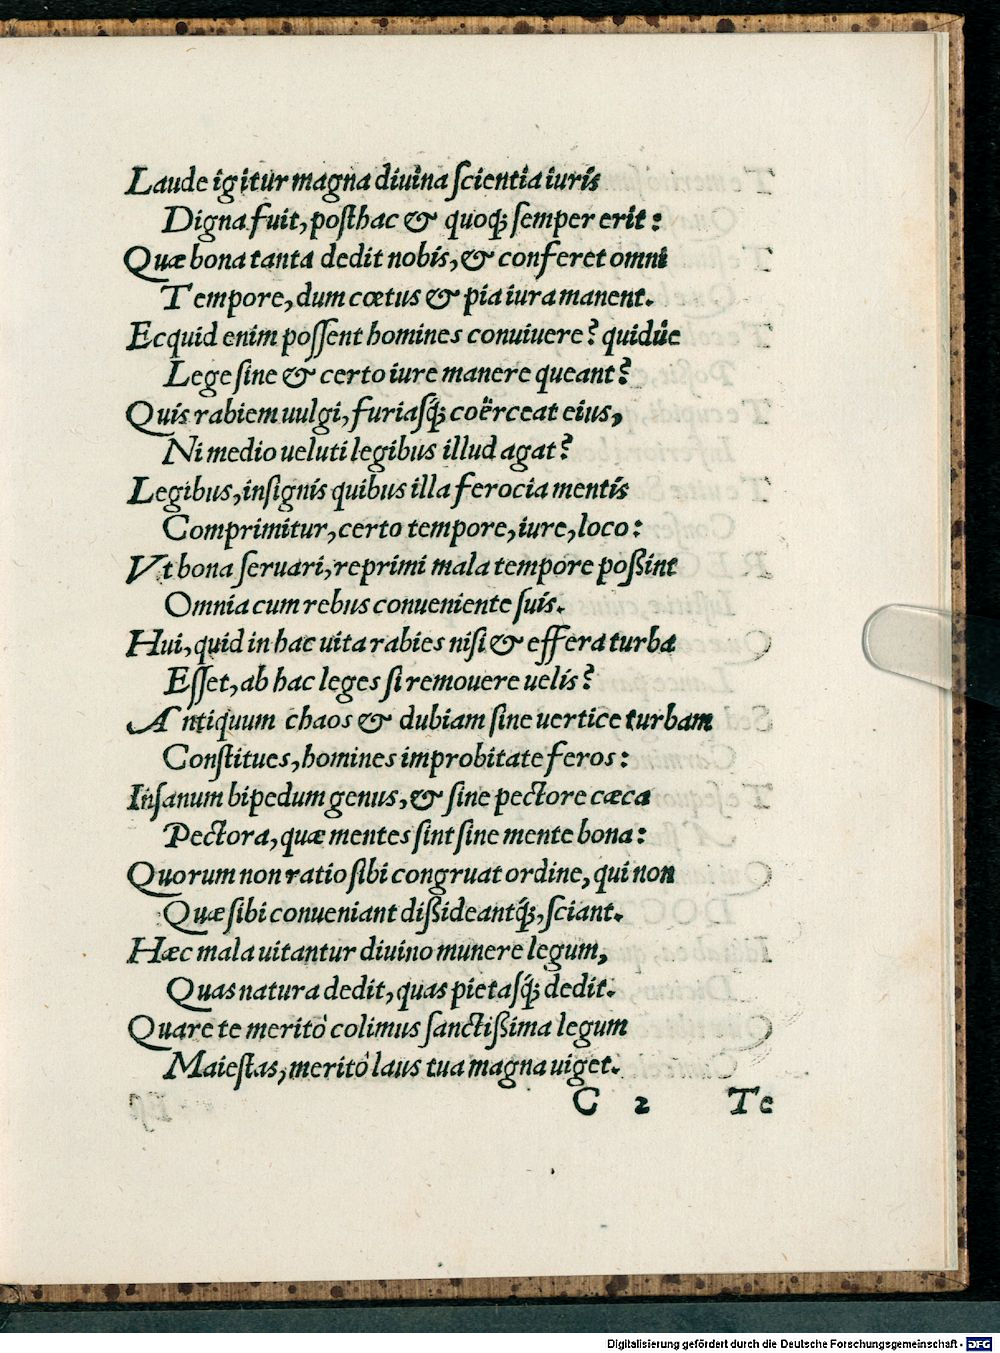 Laude igitur magna diuina ſcientia iuris
Digna fuit, poſthac & quoqꝫ ſemper erit:
Quæ bona tanta dedit nobis, & conferet omni
Tempore, dum cœtus & pia iura manent.
Ecquid enim poſſent homines conuiuere? quidûe
Lege ſine & certo iure manere queant?
Quis rabiem uulgi, furiaſqꝫ́ coërceat eius,
Ni medio ueluti legibus illud agat?
Legibus, inſignis quibus illa ferocia mentis
Comprimitur, certo tempore, iure, loco:
Vt bona ſeruari, reprimi mala tempore poßint
Omnia cum rebus conueniente ſuis.
Hui, quid in hac uita rabies niſi & effera turba
Eſſet, ab hac leges ſi remouere uelis?
Antiquum chaos & dubiam ſine uertice turbam
Conſtitues, homines improbitate feros:
Inſanum bipedum genus, & ſine pectore cæca
Pectora, quæ mentes ſint ſine mente bona:
Quorum non ratio ſibi congruat ordine, qui non
Quæ ſibi conueniant dißideantqꝫ́, ſciant.
Hæc mala uitantur diuino munere legum,
Quas natura dedit, quas pietaſqꝫ́ dedit.
Quare te meritò colimus ſanctißima legum
Maieſtas, meritò laus tua magna uiget.
C 2 Te
Digitalisierung gefördert durch die Deutsche Forschungsgemeinschaft - DFG